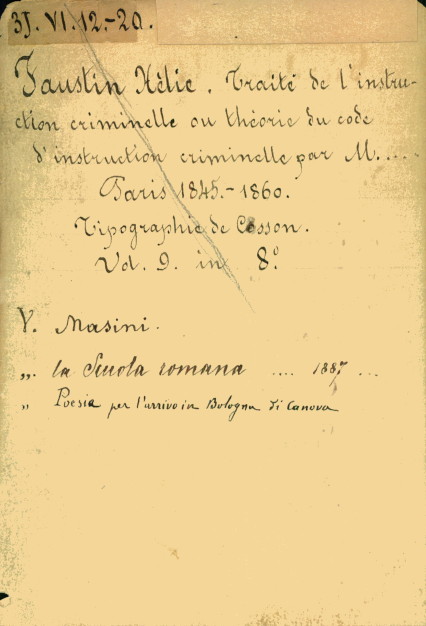 3J. VI. 12.-20.
Faustin Hèlie. Traité de l'instru-
ction criminelle ou théorie du code
d'instruction criminelle par M....
Paris 1845.-1860.
Tipographie de Cosson.
Vol. 9. in 8.º
V. Masini.
„ la Scuola romana .... 1887 ...
„ Poesia per l'arrivo in Bologna di Canova